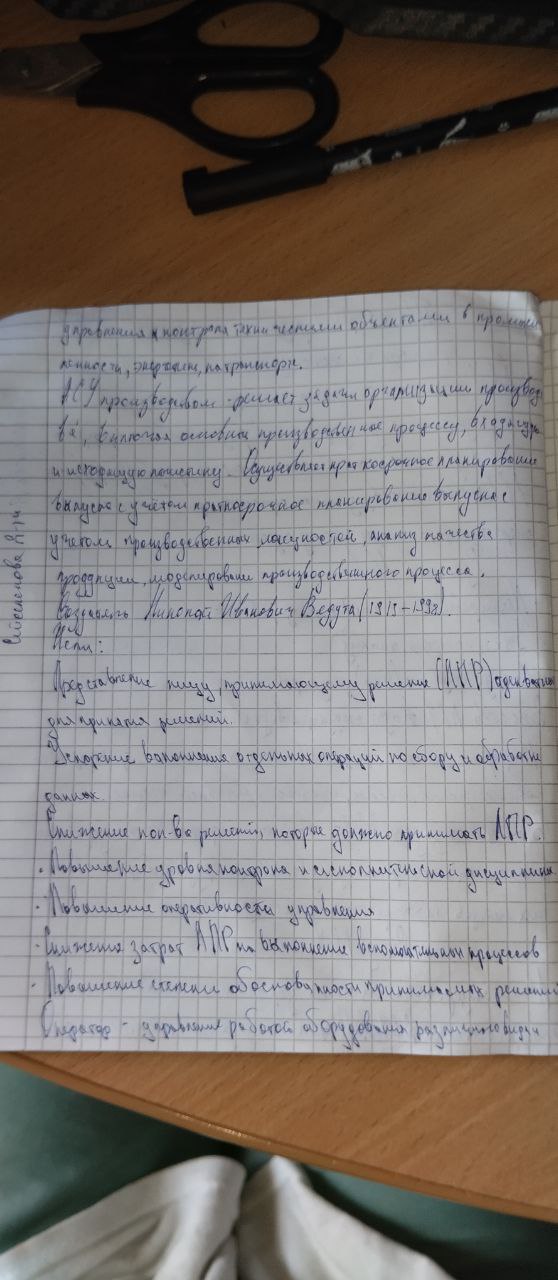 управления и контроля техническими объектами в промыш
ленности, энергетике, на транспорте.
АСУ производством - решает задачи организации производст
ва, включая основные производственные процессы, входящую
и исходящую логистику. Осуществляет краткосрочное планирование
выпуска с учётом краткосрочное планирование выпуска с
учетом производственных мощностей, анализ качества
продукции, моделирование производственного процесса.
Создатель Николай Иванович Ведута (1913-1998).
Цели:
Представление лицу, принимающему решение (ЛПР)
для принятия решений.
Ускорение выполнения отдельных операций по сбору и обработке
данных.
Снижение кол-ва решений, которые должно принимать ЛПР.
· Повышение уровня контроля и исполнительской дисциплины
· Повышение оперативности управления
· Снижение затрат ЛПР на выполнение вспомогательных процессов
· Повышение степени обоснованности принимаемых решений
Оператор - управление работой оборудования различного вида и